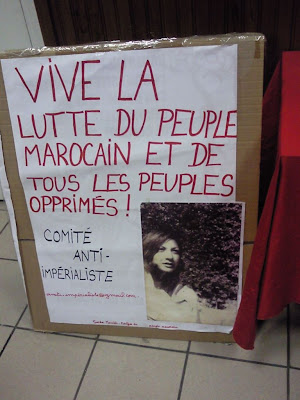 VIVE LA
LUTTE DU PEUPLE
MAROCAIN ET DE
TOUS LES PEUPLES
OPPRIMÉS !
COMITÉ
ANTI-
IMPÉRIALISTE